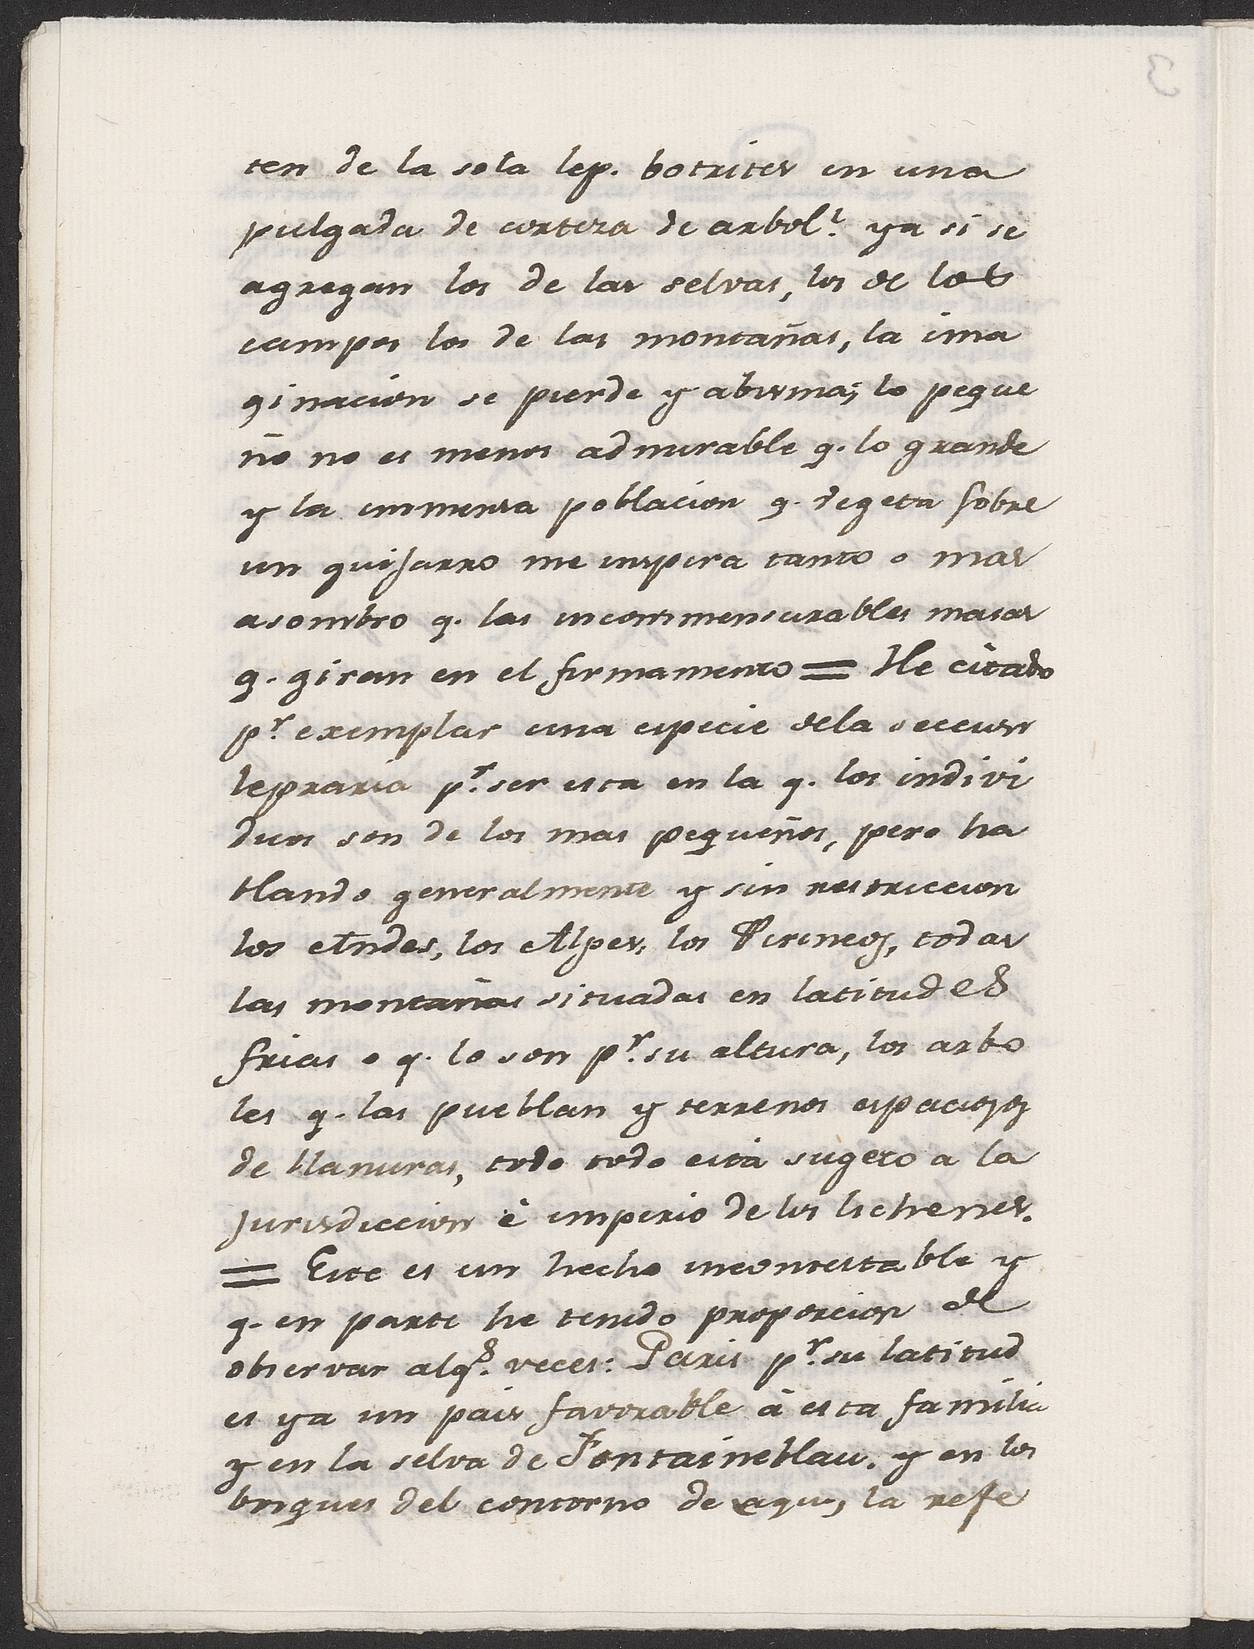 ten de la sola lep. botrites en una
pulgada de corteza de arbol.! ya si se
agregan los de las selvas, los de los
campos los de las montañas, la ima
ginacion se pierde y abisma; lo peque
ño no es menos admirable q. lo grande
y la immensa poblacion q. vegeta sobre
un guijarro me inspira tanto o mas
asombro q. las incommensurables masas
q. giran en el firmamento = He citado
p.r exemplar una especie dela seccion
lepraria p.r ser esta en la q. los indivi
duos son de los mas pequeños, pero ha
blando generalmente y sin restriccion
los Andes, los Alpes, los Pirineos, todas
las montañas situadas en latitudes
frias o q. lo son p.r su altura, los arbo
les q. las pueblan y terrenos espaciosos
de llanuras, todo todo está sugeto a la
Jurisdiccion è imperio de los lichenes.
= Este es un hecho incontestable y
q. en parte he tenido proporcion de
observar alg.s veces: Paris p.r su latitud
es ya un pais favorable à esta familia
y en la selva de Fontaineblau. y en los
bosques del contorno de aqui, la refe
3